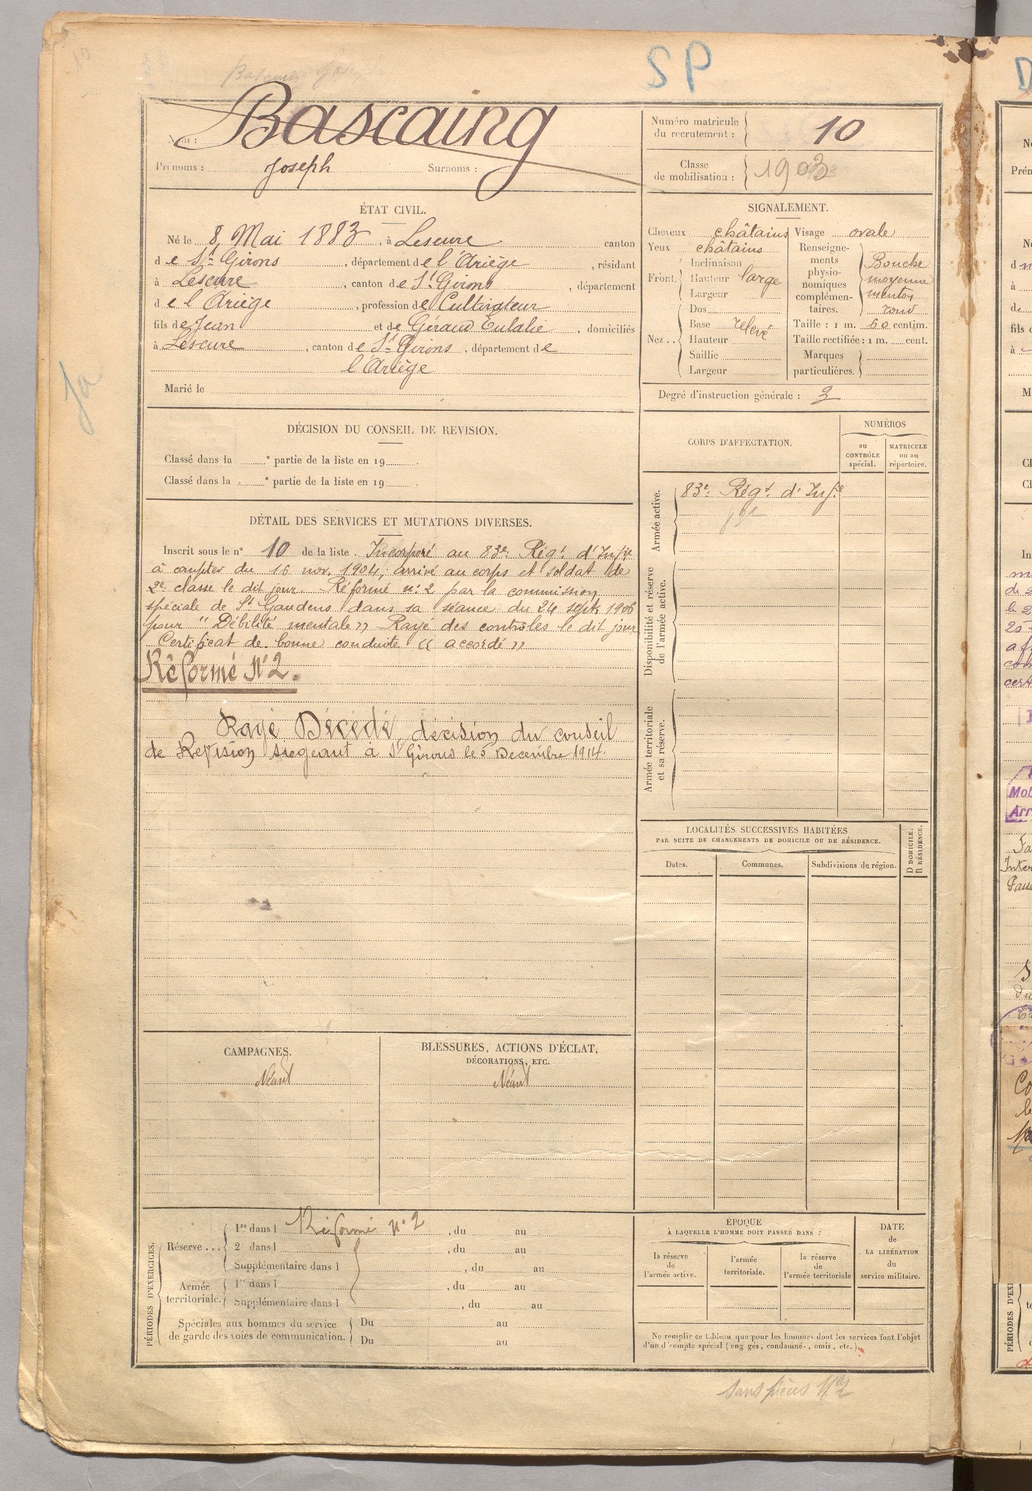 SP
Nom : Bascaing
Prénoms : Joseph Surnoms :
Numéro matricule
du recrutement : 10
Classe
de mobilisation : 1903
ÉTAT CIVIL.
Né le 8 Mai 1883, à Lescure canton
de St Girons, département de l'Ariège, résidant
à Lescure, canton de St Girons, département
de l'Ariège, profession de Cultivateur
fils de Jean et de Géraud Eulalie, domiciliés
à Lescure, canton de St Girons, département de
l'Ariège
Marié le
SIGNALEMENT.
Cheveux châtains Visage ovale
Yeux châtains
Front. Inclinaison
Hauteur large
Largeur
Nez.. Dos
Base relevé
Hauteur
Saillie
Largeur
Renseignements
physionomiques
complémentaires.
Bouche
moyenne
menton
rond
Taille : 1 m. 60 centim.
Taille rectifiée : 1 m. cent.
Marques
particulières.
Degré d'instruction générale : 3
DÉCISION DU CONSEIL DE REVISION.
Classé dans la e partie de la liste en 19
Classé dans la e partie de la liste en 19
CORPS D'AFFECTATION.
NUMÉROS
au
CONTRÔLE
spécial.
MATRICULE
ou au
répertoire.
Armée active.
83e Régt d'Infie
Disponibilité et réserve
de l'armée active.
Armée territoriale
et sa réserve.
DÉTAIL DES SERVICES ET MUTATIONS DIVERSES.
Inscrit sous le n° 10 de la liste. Incorporé au 83e Régt d'Infie
à compter du 16 nov. 1904, arrivé au corps et soldat de
2e classe le dit jour. Réformé n° 2 par la commission
spéciale de St Gaudens dans sa séance du 24 septe 1906
pour "Débilité mentale" Rayé des contrôles le dit jour
Certificat de bonne conduite "accordé"
Réformé N° 2.
Rayé Décédé, décision du conseil
de Revision siégeant à St Girons le 5 Decembre 1914.
LOCALITÉS SUCCESSIVES HABITÉES
PAR SUITE DE CHANGEMENTS DE DOMICILE OU DE RÉSIDENCE.
Dates.
Communes.
Subdivisions de région.
D DOMICILE.
R RÉSIDENCE.
CAMPAGNES.
Néant
BLESSURES, ACTIONS D'ÉCLAT,
DÉCORATIONS, ETC.
Néant
PÉRIODES D'EXERCICES.
Réserve...
1re dans l Réformé n° 2, du au
2 dans l , du au
Supplémentaire dans l , du au
Armée
territoriale.
1re dans l , du au
Supplémentaire dans l , du au
Spéciales aux hommes du service
de garde des voies de communication.
Du au
Du au
ÉPOQUE
À LAQUELLE L'HOMME DOIT PASSER DANS :
la réserve
de
l'armée active.
l'armée
territoriale.
la réserve
de
l'armée territoriale
DATE
de
LA LIBÉRATION
du
service militaire.
Ne remplir ce tableau que pour les hommes dont les services font l'objet
d'un décompte spécial (engagés, condamnés, omis, etc.).
sans pièces N° 2